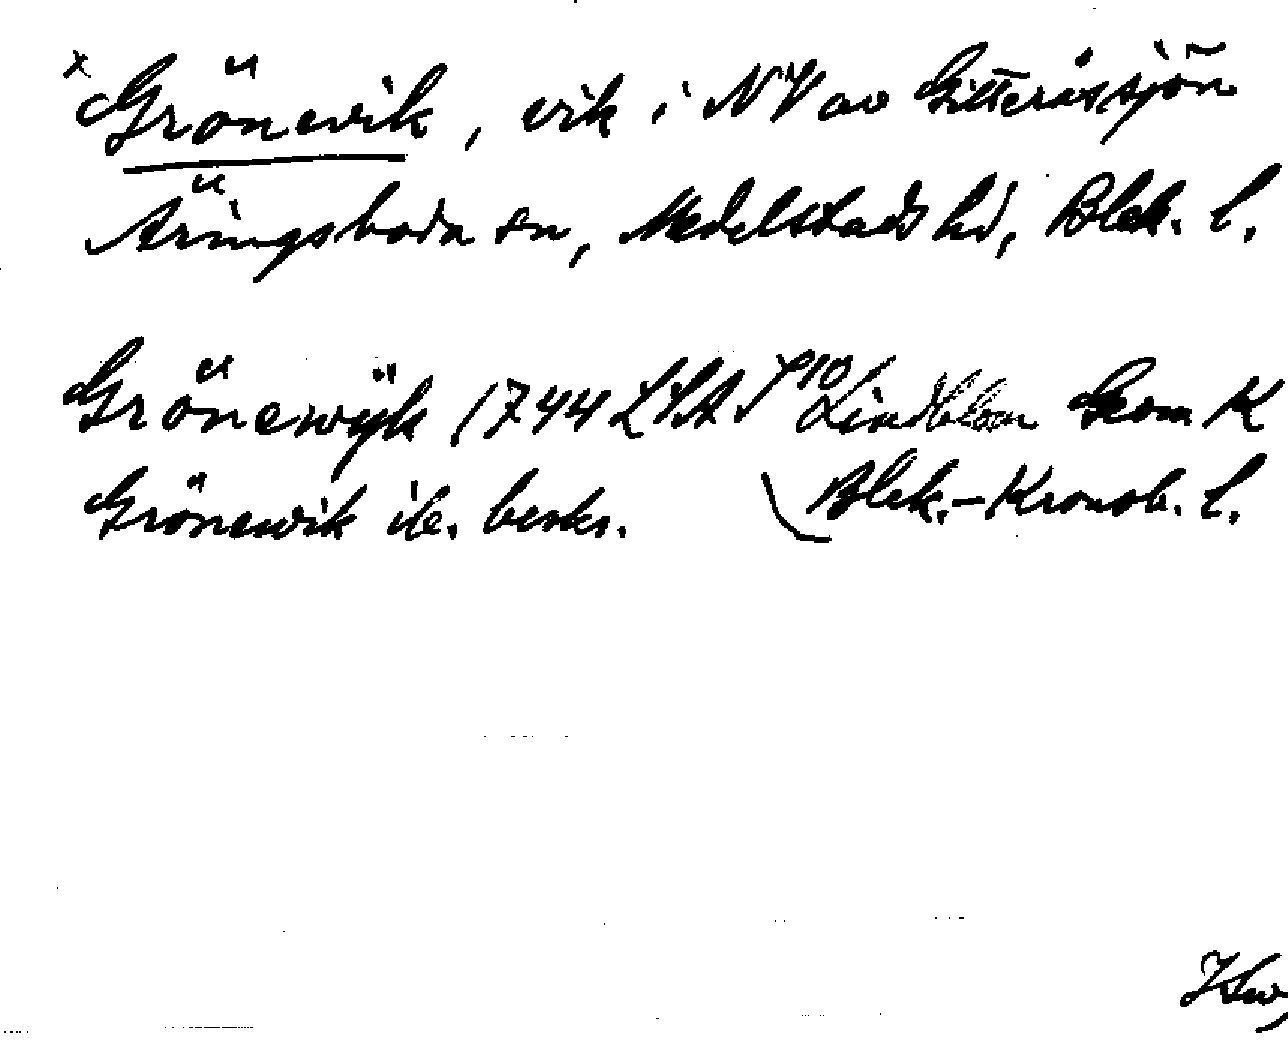 x Grönevik, vik i NV av Gitteråssjön
Äringsboda sn, Medelstads hd, Blek. l.
Grönewÿk 1744 LSA S 10 Lindblom Geom K
Grönewik ib. beskr. Blek.-Kronob. l.